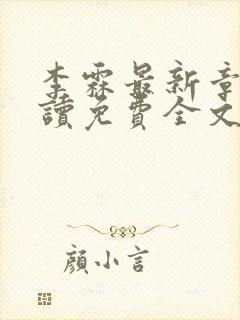 李霖最新章
讀免費全文
顏小言